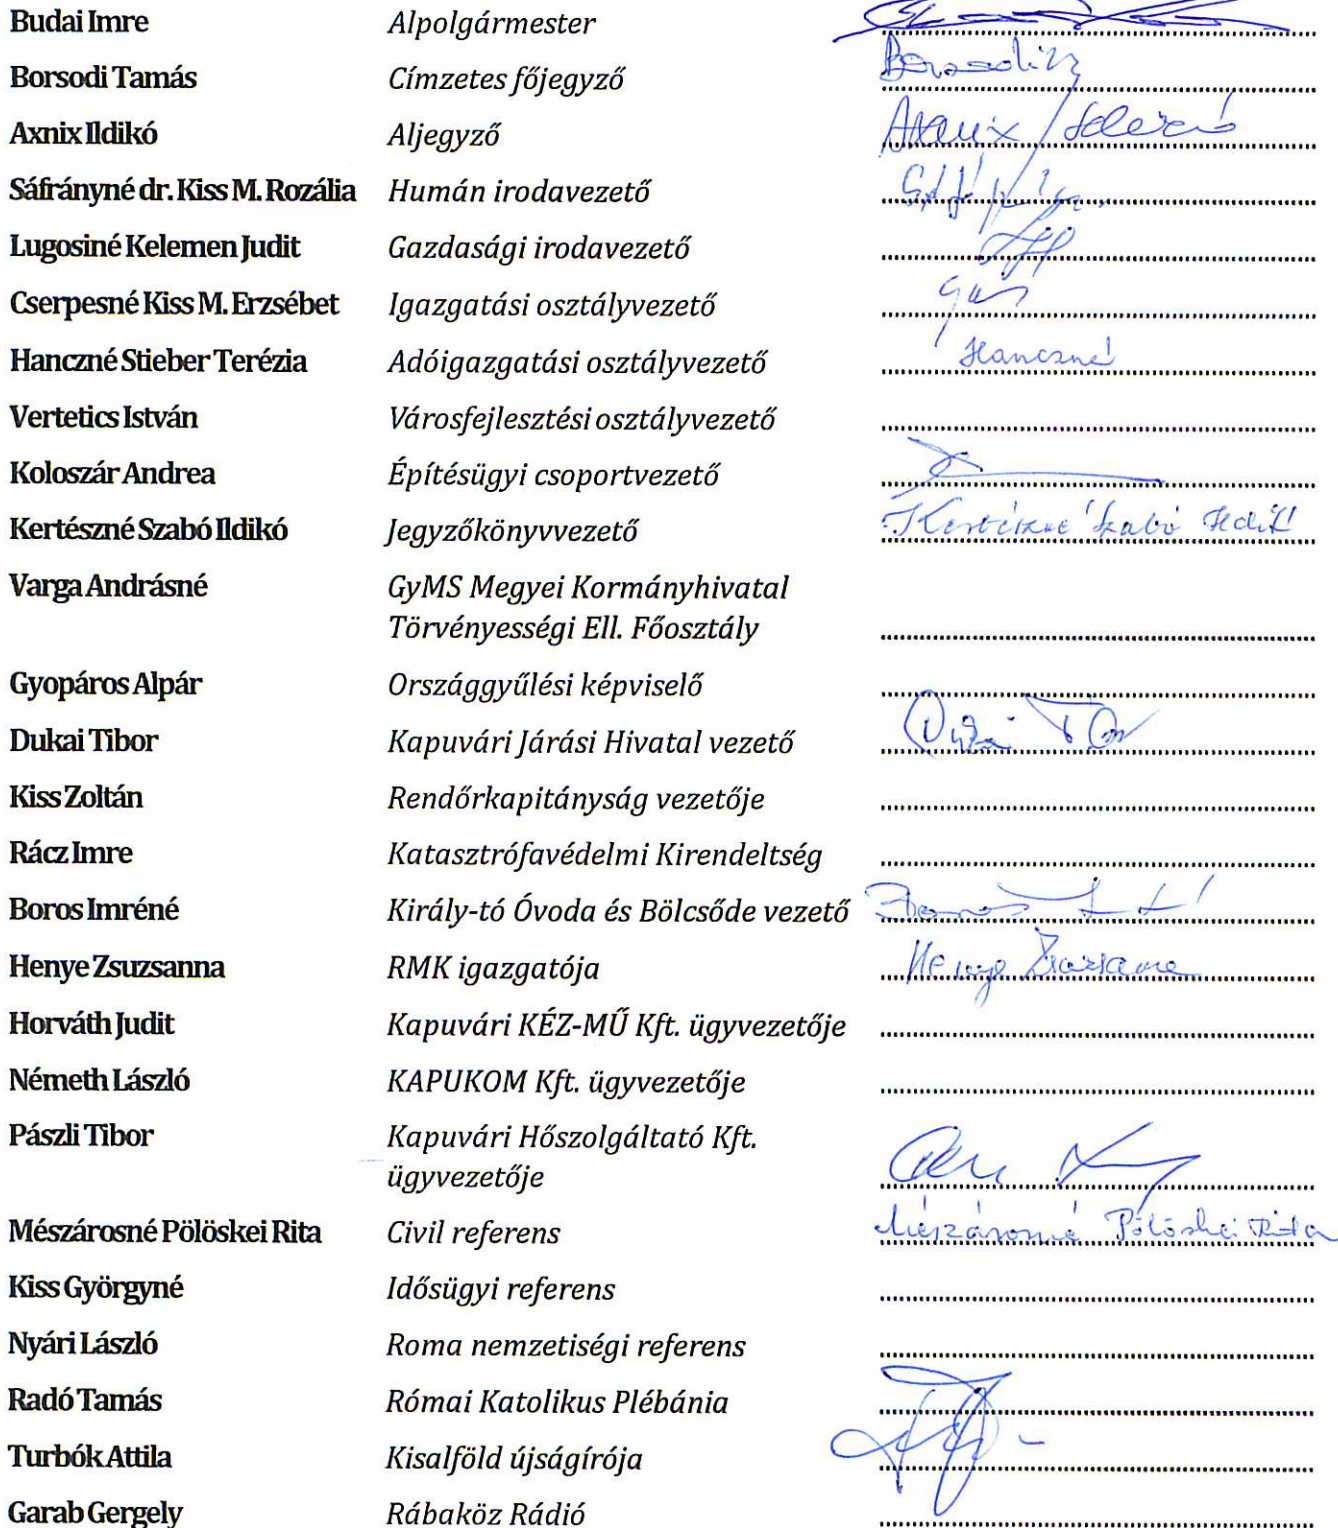 Budai Imre Alpolgármester
Borsodi Tamás Címzetes főjegyző Borsodi
Axnix Ildikó Aljegyző Axnix Ildikó
Sáfrányné dr. Kiss M. Rozália Humán irodavezető
Lugosiné Kelemen Judit Gazdasági irodavezető
Cserpesné Kiss M. Erzsébet Igazgatási osztályvezető
Hanczné Stieber Terézia Adóigazgatási osztályvezető Hanczné
Vertetics István Városfejlesztési osztályvezető
Koloszár Andrea Építésügyi csoportvezető
Kertészné Szabó Ildikó Jegyzőkönyvvezető Kertészné Szabó Ildikó
Varga Andrásné GyMS Megyei Kormányhivatal
Törvényességi Ell. Főosztály
Gyopáros Alpár Országgyűlési képviselő
Dukai Tibor Kapuvári Járási Hivatal vezető
Kiss Zoltán Rendőrkapitányság vezetője
Rácz Imre Katasztrófavédelmi Kirendeltség
Boros Imréné Király-tó Óvoda és Bölcsőde vezető Boros
Henye Zsuzsanna RMK igazgatója Henye Zsuzsanna
Horváth Judit Kapuvári KÉZ-MŰ Kft. ügyvezetője
Németh László KAPUKOM Kft. ügyvezetője
Pászli Tibor Kapuvári Hőszolgáltató Kft.
ügyvezetője
Mészárosné Pölöskei Rita Civil referens Mészárosné Pölöskei Rita
Kiss Györgyné Idősügyi referens
Nyári László Roma nemzetiségi referens
Radó Tamás Római Katolikus Plébánia
Turbók Attila Kisalföld újságírója
Garab Gergely Rábaköz Rádió